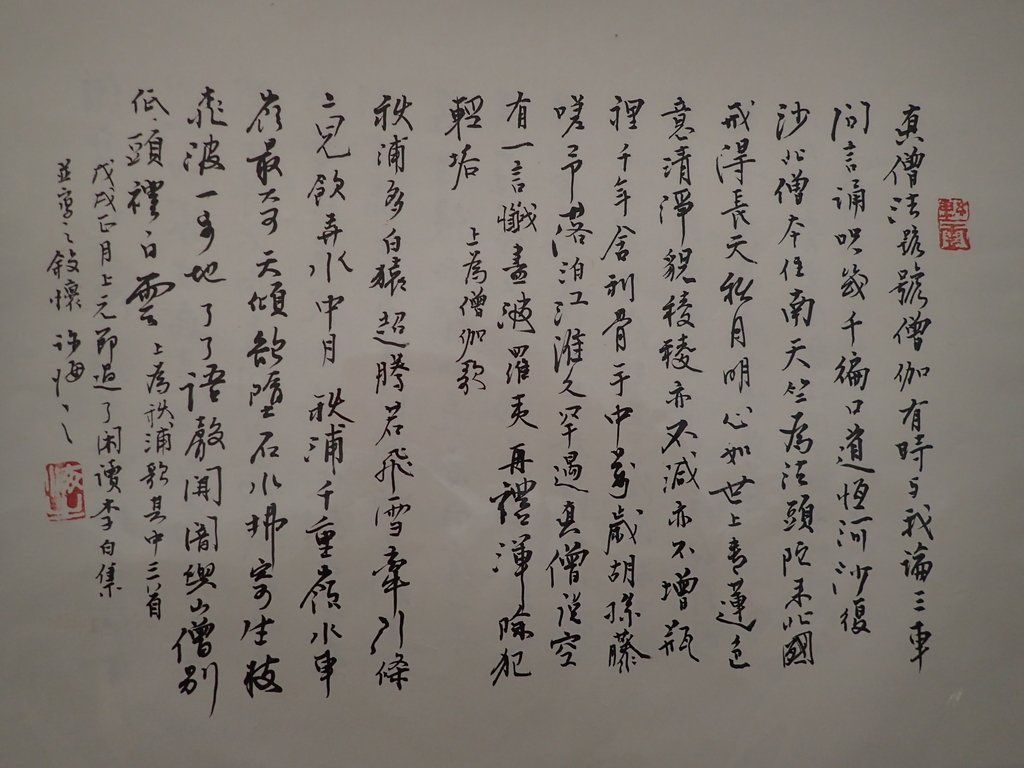 真僧法號號僧伽有時与我論三車
問言誦咒幾千遍口道恆河沙復
沙此僧本住南天竺為法頭陀來此國
戒得長天秋月明心如世上青蓮色
意清淨貌稜稜亦不減亦不增瓶
裡千年舍利骨手中萬歲胡孫藤
嗟予落泊江淮久罕遇真僧說空
有一言懺盡波羅夷再禮渾除犯
輕垢 上為僧伽歌
秋浦多白猿超騰若飛雪牽引條
上兒飲弄水中月 秋浦千重嶺水車
嶺最奇天傾欲墮石水拂寄生枝
桃波一步地了了語聲聞闇與山僧別
低頭禮白雲 上為秋浦歌其中三首
戊戌正月上元節過了閑讀李白集
並寫之敘懷 許悔之